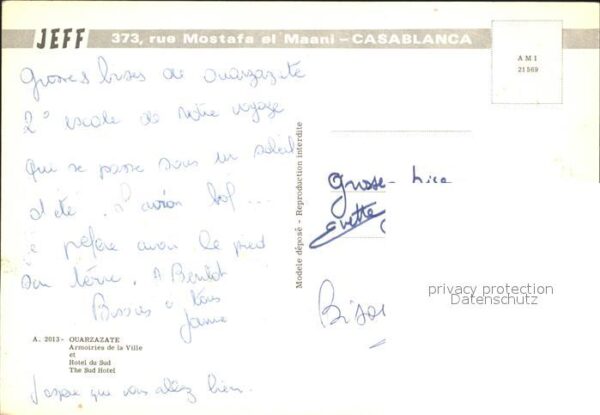 JEFF 373, rue Mostafa el Maani – CASABLANCA
AMI
21569
Grosses bises de Ouarzazate
2° escale de notre voyage
qui se passe sous un soleil
d'été. L'avion bof...
je préfère avoir le pied
sur terre. A Bientôt
Bisous à tous
Modèle déposé - Reproduction interdite
Grosse
Bisou
privacy protection
Datenschutz
A. 2013 - OUARZAZATE
Armoiries de la Ville
et
Hotel du Sud
The Sud Hotel
J'espère que vous allez bien.